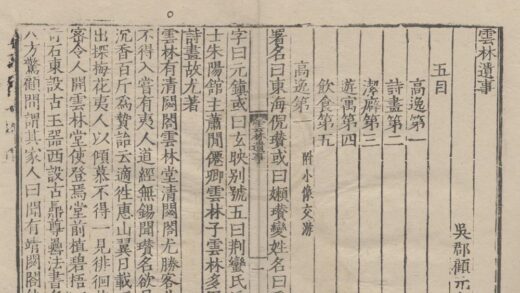 雲林遺事
吳郡顧元
五目
高逸第一
詩畫第二
潔癖第三
遊寓第四
飲食第五
高逸第一 附小像交游
署名曰東海倪瓚或曰嬾瓚變姓名曰
雲林遺事 一
字曰元鎮或曰玄映別號五曰荆蠻氏
士朱陽館主蕭閒僊卿雲林子雲林多
詩畫故尤著
雲林有清閟閣雲林堂清閟閣尤勝客
不得入嘗有夷人道經無錫聞瓚名欲見
沉香百斤爲贄紿云適徃惠山翼日載
出探梅花夷人以傾慕不得一見徘徊
密令人開雲林堂使登焉堂前植碧梧
奇石東設古玉器西設古鼎尊罍法書
八方驚顧間謂其家人曰聞有清閟閣